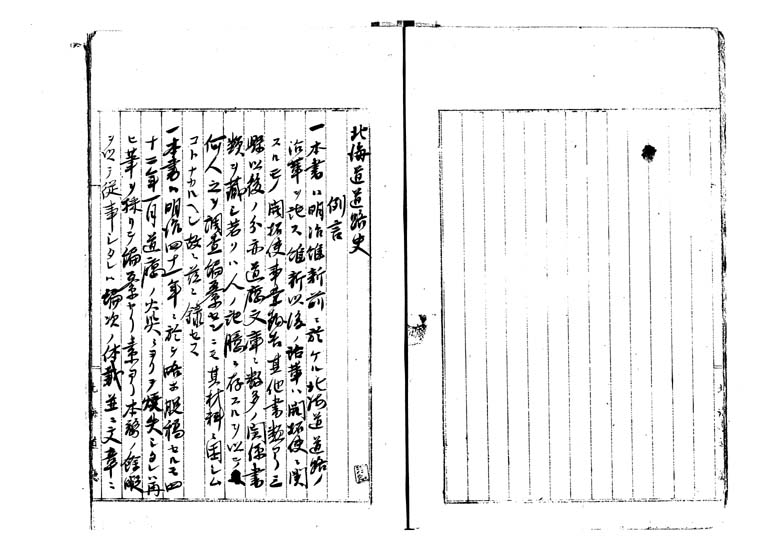 北海道道路史
例言
一本書ハ明治維新前ニ於ケル北海道道路ノ
沿革ヲ記ス維新以後ノ沿革ハ開拓使ニ関
スルモノ開拓使事業報告其他書類アリ三
縣以後ノ分亦道廳文庫ニ数多ノ関係書
類ヲ蔵し若クハ人ノ記臆ニ存スルヲ以テ
何人之ヲ調査編纂セシニモ其材料ニ困シム
コトナカルヘシ故ニ茲ニ録セス
一本書ハ明治四十一年ニ於テ略ホ脱稿セルモ四
十二年一月道廳ノ火災ニヨリテ焼失シタレ再
ヒ筆ヲ採リテ編纂セリ素ヨリ本務ノ餘暇
ヲ以テ従事シタレハ編次ノ体裁並ニ文章ニ
北海道